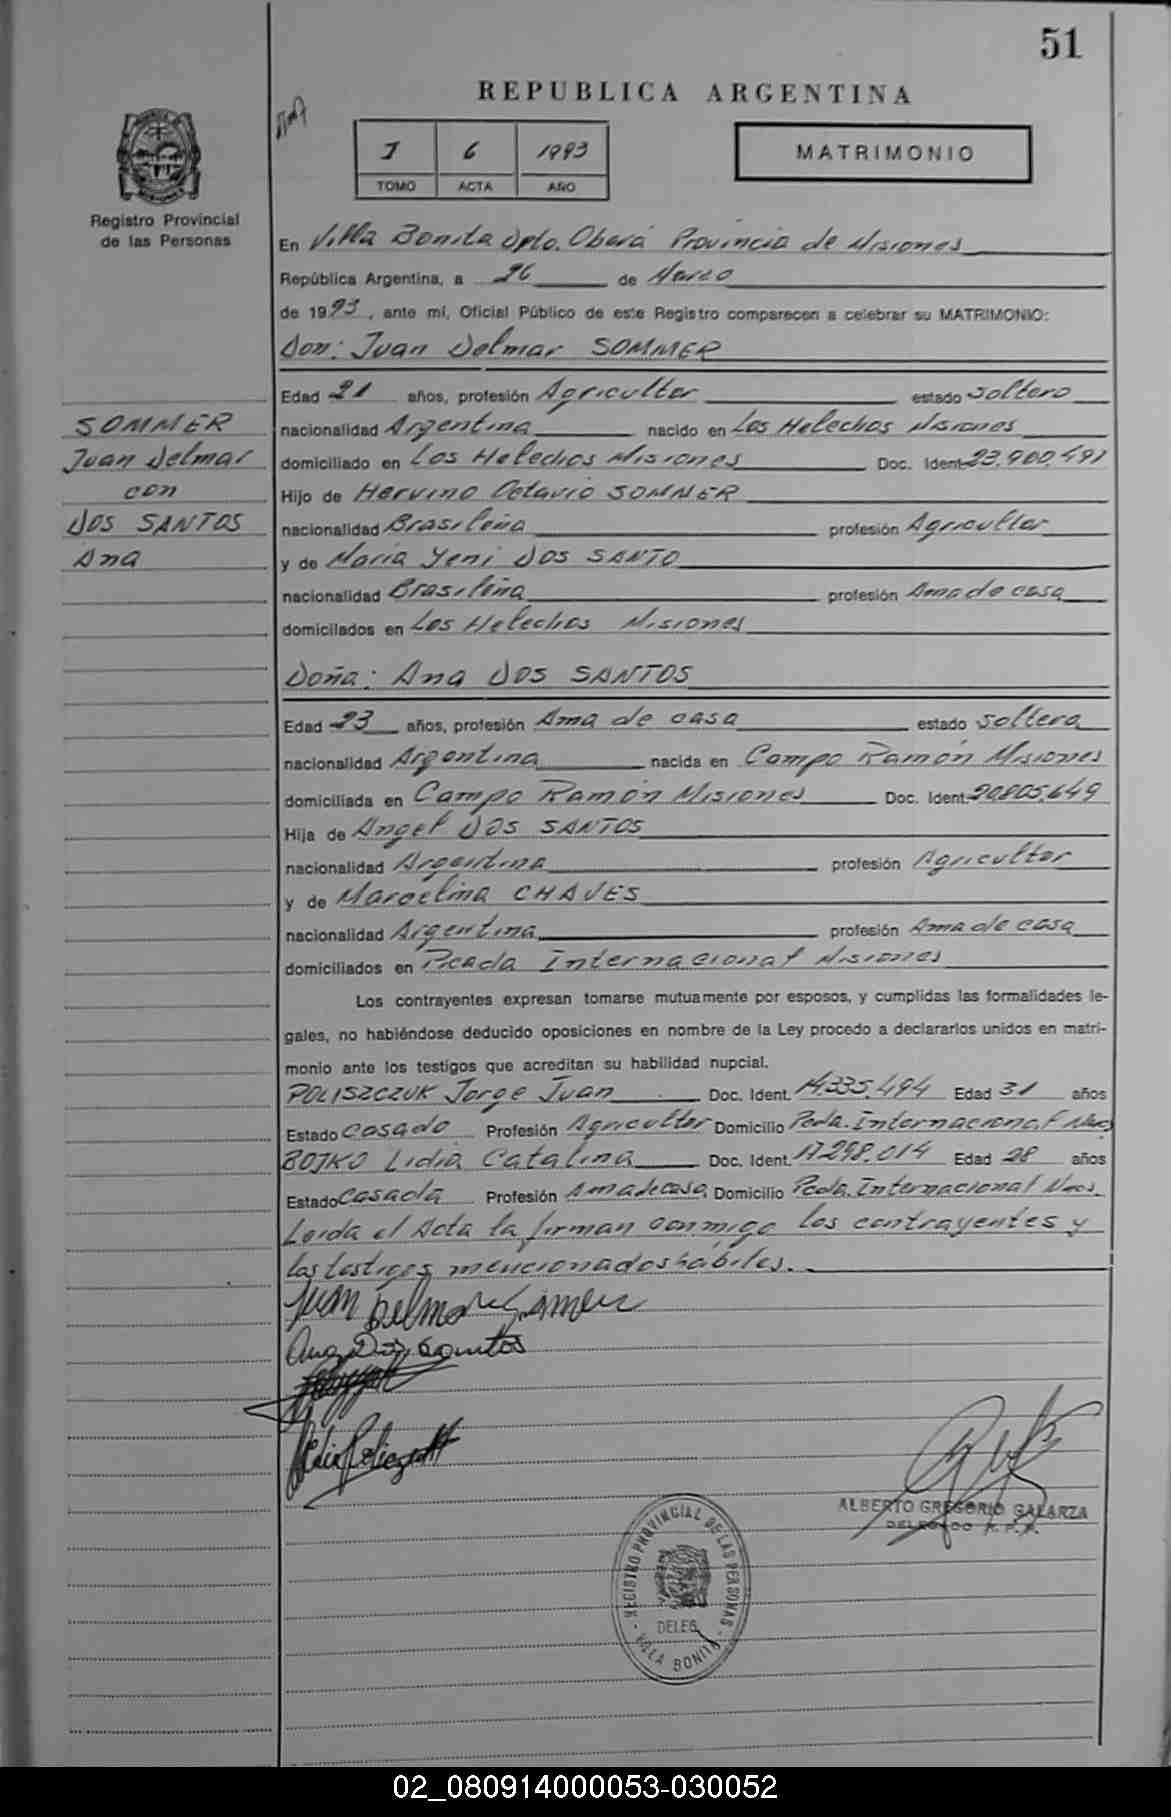 51
REPUBLICA ARGENTINA
I 6 1993
TOMO ACTA AÑO
MATRIMONIO
Registro Provincial
de las Personas
En Villa Bonita Dpto. Oberá Provincia de Misiones
República Argentina, a 26 de Marzo
de 1993, ante mí, Oficial Público de este Registro comparecen a celebrar su MATRIMONIO:
Don: Juan Delmar SOMMER
Edad 21 años, profesión Agricultor estado soltero
nacionalidad Argentina nacido en Los Helechos Misiones
domiciliado en Los Helechos Misiones Doc. Ident. 23.900.491
Hijo de Hervino Octavio SOMMER
nacionalidad Brasileña profesión Agricultor
y de María Yeni DOS SANTO
nacionalidad Brasileña profesión Ama de casa
domicilados en Los Helechos Misiones
SOMMER
Juan Delmar
con
DOS SANTOS
Ana
Doña: Ana DOS SANTOS
Edad 23 años, profesión Ama de casa estado soltera
nacionalidad Argentina nacida en Campo Ramón Misiones
domiciliada en Campo Ramón Misiones Doc. Ident. 20.805.649
Hija de Angel DOS SANTOS
nacionalidad Argentina profesión Agricultor
y de Marcelina CHAVES
nacionalidad Argentina profesión Ama de casa
domiciliados en Picada Internacional Misiones
Los contrayentes expresan tomarse mutuamente por esposos, y cumplidas las formalidades le-
gales, no habiéndose deducido oposiciones en nombre de la Ley procedo a declararlos unidos en matri-
monio ante los testigos que acreditan su habilidad nupcial.
POLISZCZUK Jorge Juan Doc. Ident. 14.335.494 Edad 31 años
Estado Casado Profesión Agricultor Domicilio Pcda. Internacional Mnes
BOJKO Lidia Catalina Doc. Ident. 17.298.014 Edad 28 años
Estado Casada Profesión Ama de casa Domicilio Pcda. Internacional Mnes.
Leída el Acta la firman conmigo los contrayentes y
los testigos mencionados hábiles.
Juan Delmar Somer
Ana Dos Santos
ALBERTO GREGORIO GALARZA
DELEGADO R. P. P.
REGISTRO PROVINCIAL DE LAS PERSONAS
DELEG.
VILLA BONITA
02_080914000053-030052